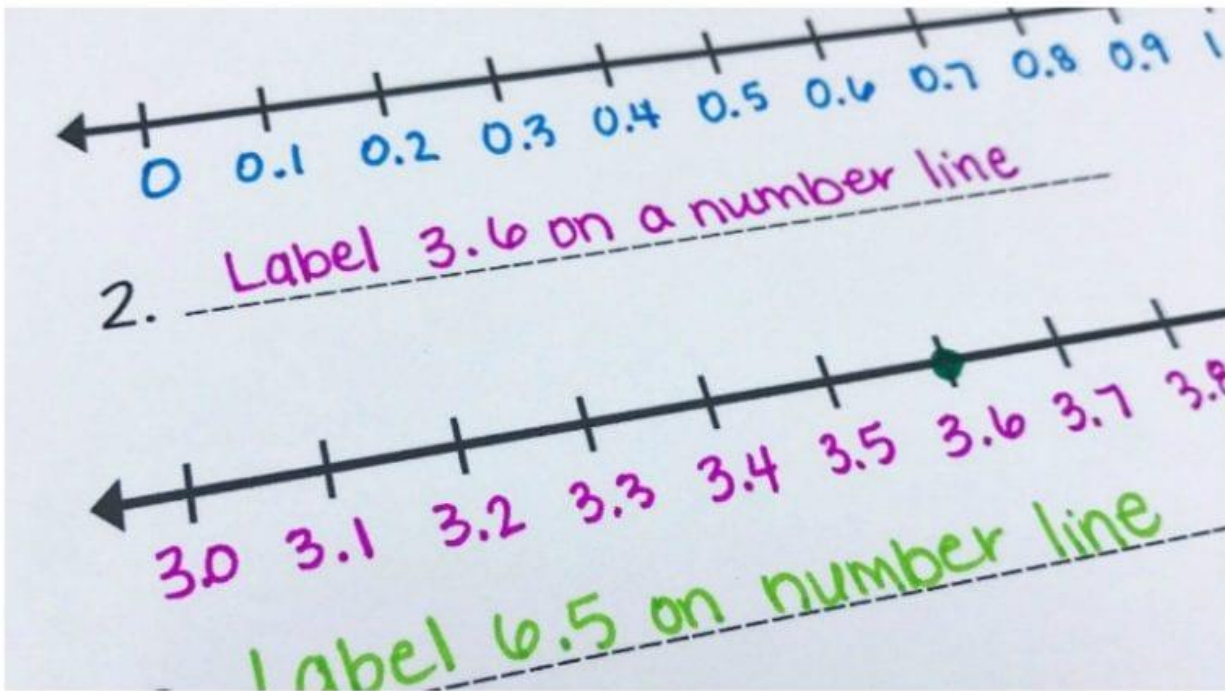 0 0.1 0.2 0.3 0.4 0.5 0.6 0.7 0.8 0.9 1
2. Label 3.6 on a number line
3.0 3.1 3.2 3.3 3.4 3.5 3.6 3.7 3.8
Label 6.5 on number line